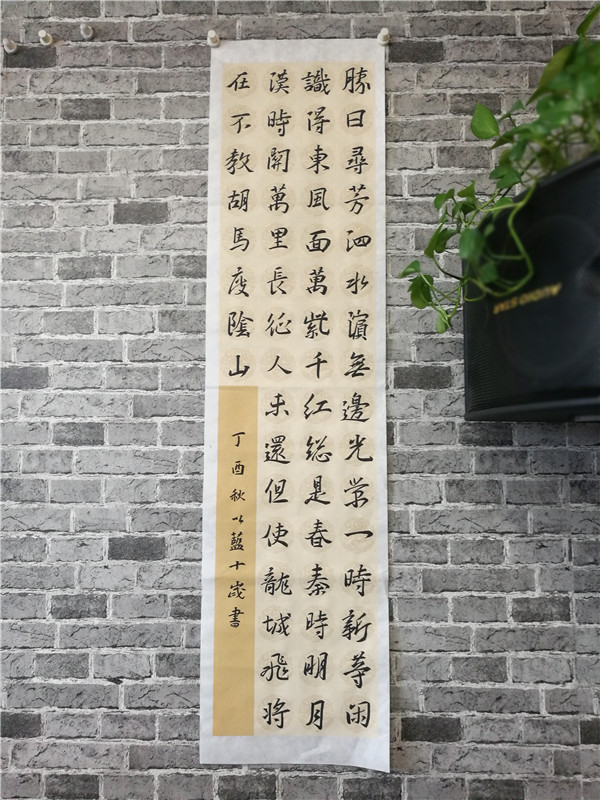 勝日尋芳泗水濱無邊光景一時新等闲
識得東風面萬紫千紅總是春秦時明月
漢時關萬里長征人未還但使龍城飛將
在不教胡馬度陰山
丁酉秋以藍十歲書